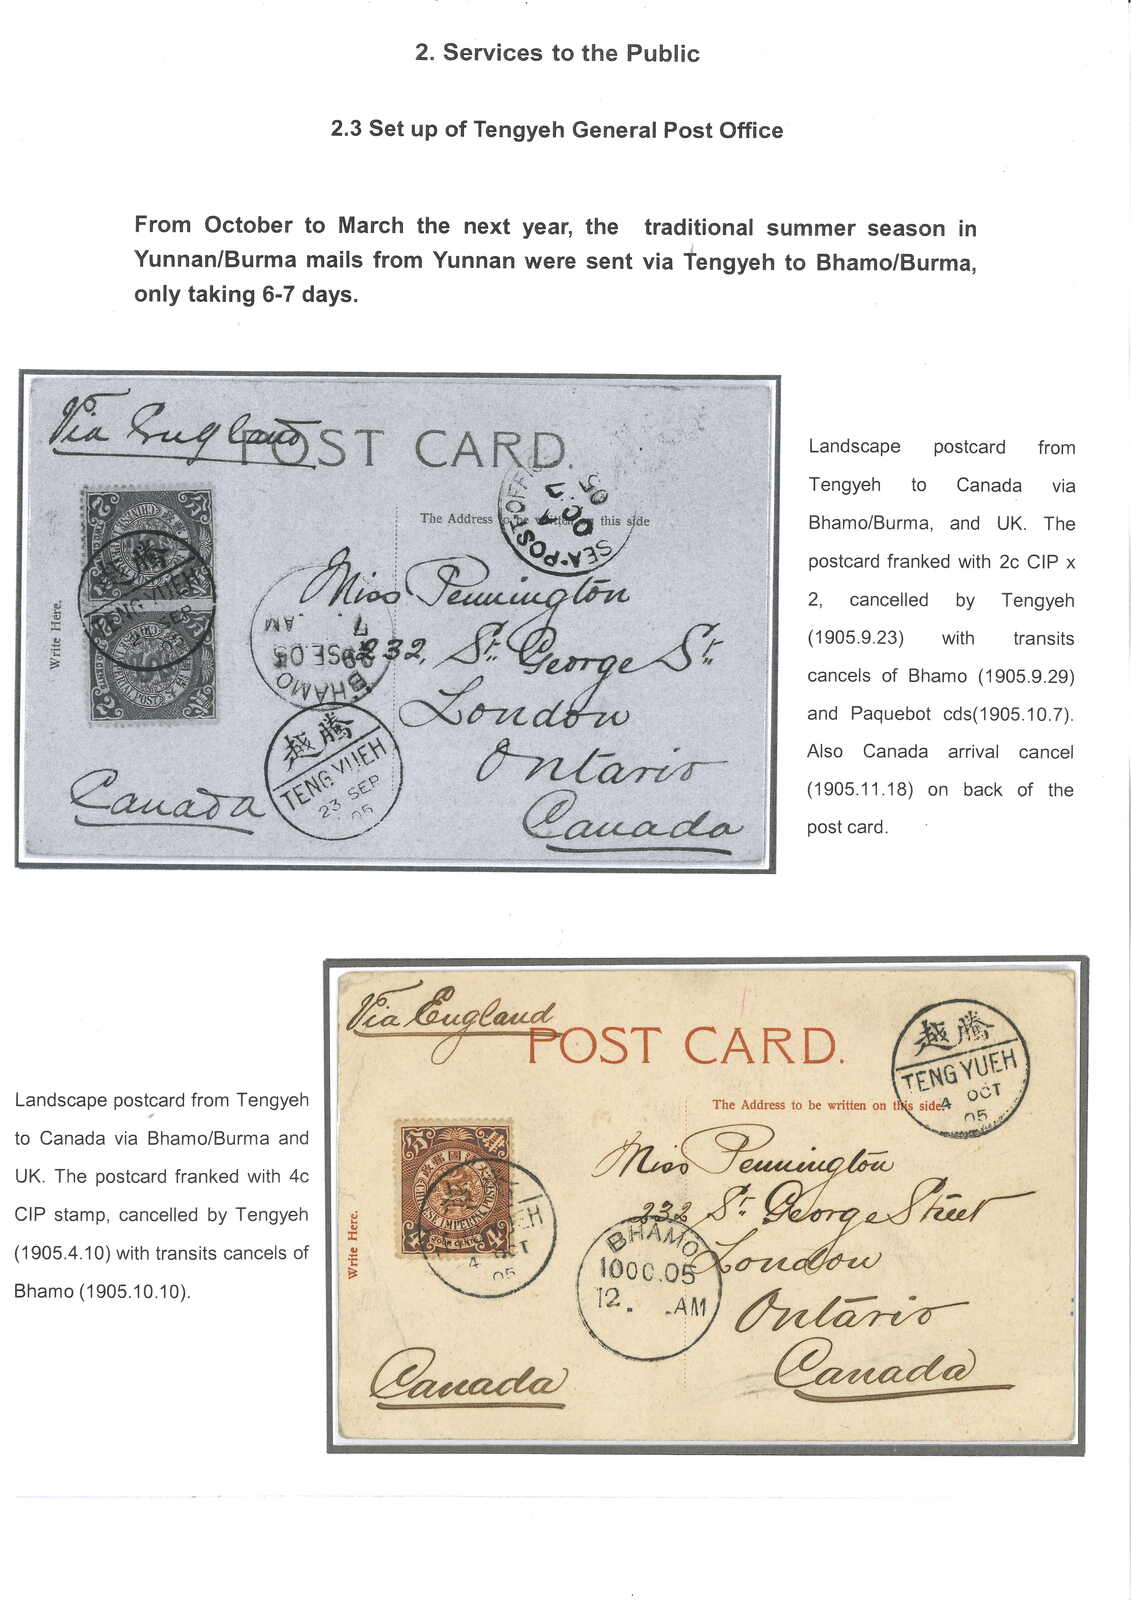 2. Services to the Public
2.3 Set up of Tengyeh General Post Office
From October to March the next year, the traditional summer season in
Yunnan/Burma mails from Yunnan were sent via Tengyeh to Bhamo/Burma,
only taking 6-7 days.
Via England
POST CARD.
The Address to be written on this side
SEA-POST-OFFIC
7
OC
05
Write Here.
TENG YUEH
SEP
Miss Pennington
232, St. George St.
London
Ontario
Canada
BHAMO
29 SE.05
7 AM
騰越
TENG YUEH
23 SEP
05
Canada
Landscape postcard from
Tengyeh to Canada via
Bhamo/Burma, and UK. The
postcard franked with 2c CIP x
2, cancelled by Tengyeh
(1905.9.23) with transits
cancels of Bhamo (1905.9.29)
and Paquebot cds(1905.10.7).
Also Canada arrival cancel
(1905.11.18) on back of the
post card.
Landscape postcard from Tengyeh
to Canada via Bhamo/Burma and
UK. The postcard franked with 4c
CIP stamp, cancelled by Tengyeh
(1905.4.10) with transits cancels of
Bhamo (1905.10.10).
Via England
POST CARD.
The Address to be written on this side.
騰越
TENG YUEH
4 OCT
05
Write Here.
政郵國清大
4 OCT
05
Miss Pennington
232 St. George Street
London
Ontario
Canada
BHAMO
10OC.05
12. AM
Canada